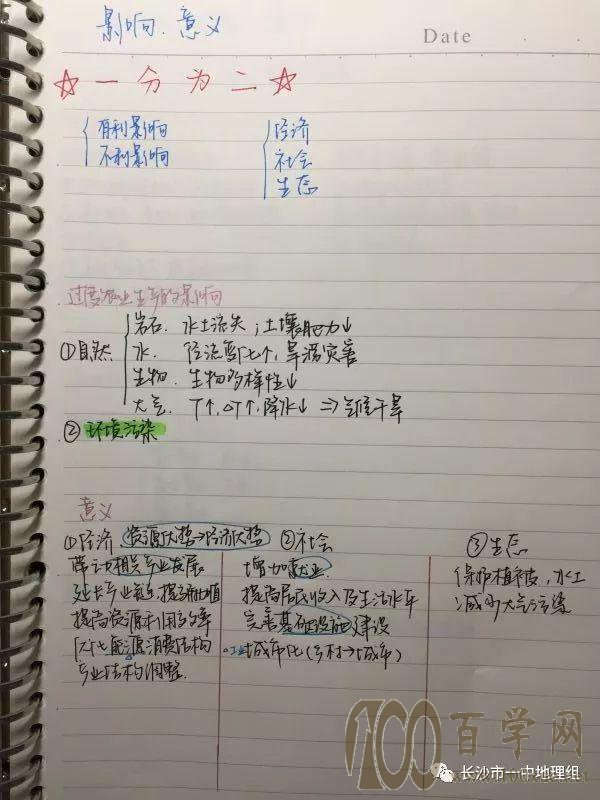 影响.意义
Date
☆一分为二☆
有利影响
不利影响
经济
社会
生态
过度农业生产的影响
①自然
岩石. 水土流失;土壤肥力↓
水. 径流变化个,旱涝灾害
生物. 生物多样性↓
大气. T↑,ΔT↑,降水↓⇒气候干旱
②环境污染
意义
①经济 资源优势→经济优势
带动相关产业发展
延长产业链,提高附加值
提高资源利用效率
优化能源消费结构
产业结构调整.
②社会
增加就业
提高居民收入及生活水平
完善基础设施建设
工业城市化(乡村→城市)
③生态
保护植被,水土
减少大气污染
100百学网
长沙市一中地理组